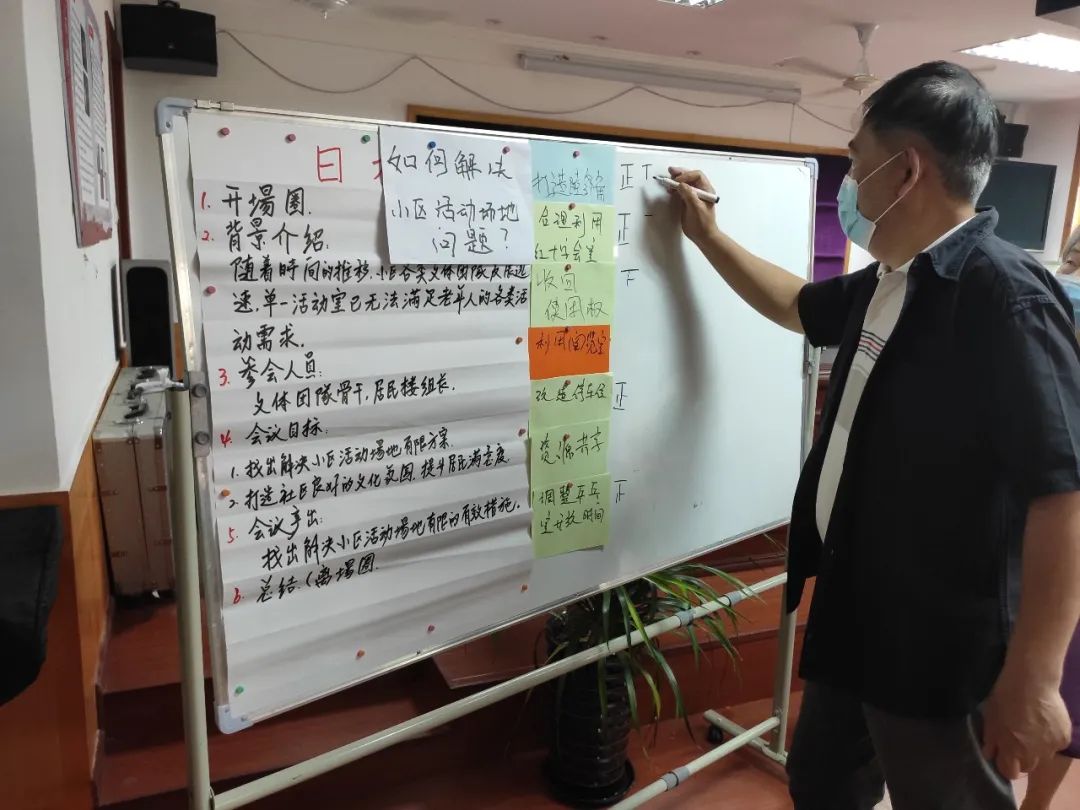 日
如何解决
小区活动场地
问题？
1. 开場圈.
2. 背景介绍.
随着时间的推移.小区各类文体团队发展迅
速,单一活动室已无法满足老年人的各类活
动需求.
3. 参会人员:
文体团队骨干,居民楼组长.
4. 会议目标:
1. 找出解决小区活动场地有限方案.
2. 打造社区良好的文化氛围,提升居民满意度.
5. 会议产出:
找出解决小区活动场地有限的有效措施.
6. 总结.(离場圈.
打造
合理利用
红十字会室
收回
使用权
利用阅览室
改造停车位
资源共享
调整乒乓
室开放时间
正 丅
正 一
下
正
正